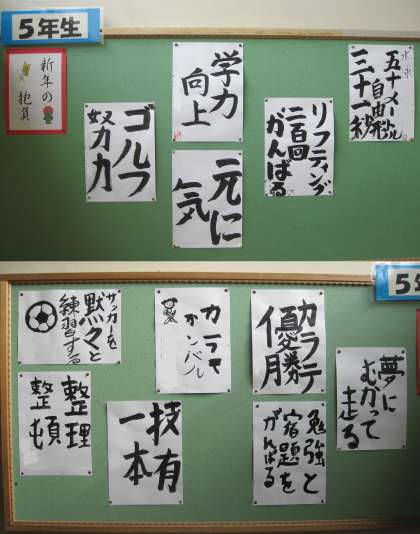 5年生
新年の
抱負
水泳
五十メートル
自由形
三十一秒
リフティング
二百回
がんばる
学力
向上
元に
気
ゴルフ
努力
5年
夢に
むかって
走る
カラテ
優勝
勉強と
宿題を
がんばる
カラテ
ガンバル
技有
一本
サッカーを
黙々と
練習する
整理
整頓